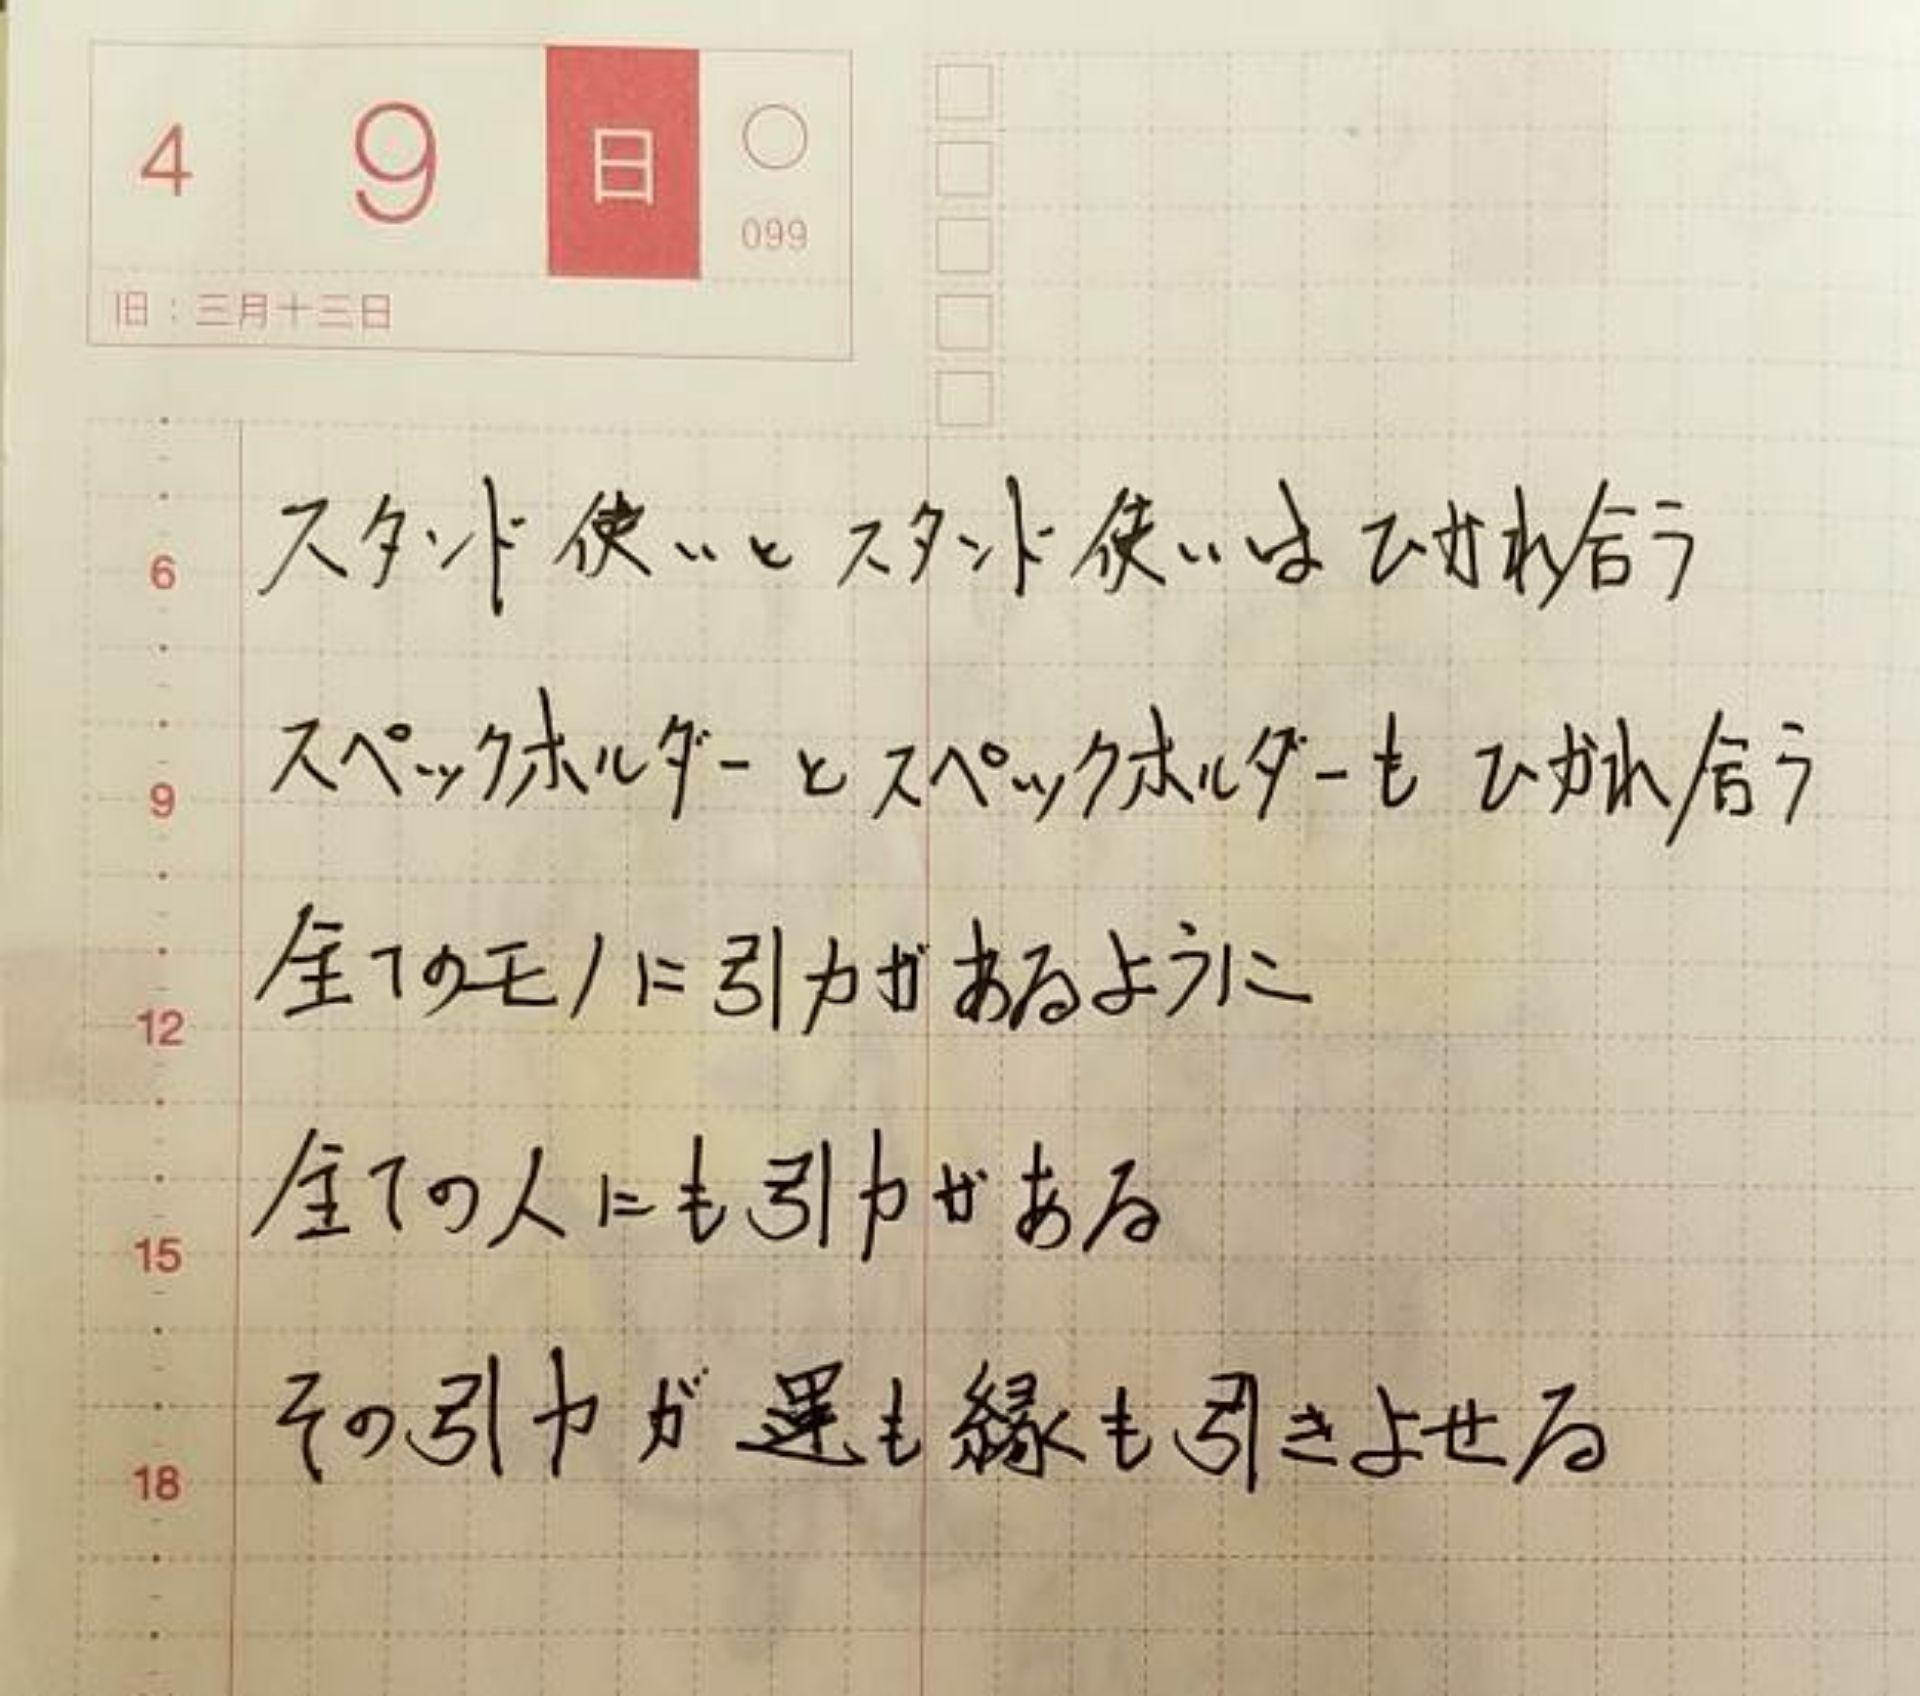 4 9 日 ○
099
旧：三月十三日
スタンド使いとスタンド使いはひかれ合う
6
スペックホルダーとスペックホルダーもひかれ合う
9
全てのモノに引力があるように
12
全ての人にも引力がある
15
その引力が運も縁も引きよせる
18